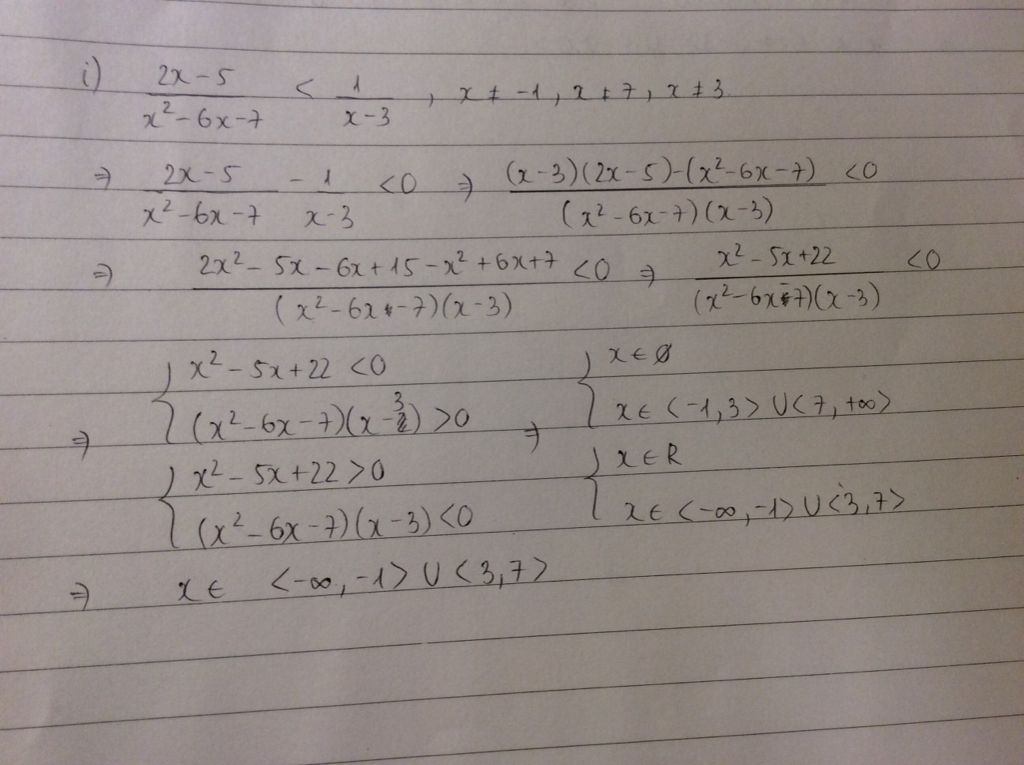 i) (2x-5)/(x²-6x-7) < 1/(x-3) , x ≠ -1, x ≠ 7, x ≠ 3
⇒ (2x-5)/(x²-6x-7) - 1/(x-3) <0 ⇒ ((x-3)(2x-5)-(x²-6x-7))/((x²-6x-7)(x-3)) <0
⇒ (2x²-5x-6x+15-x²+6x+7)/((x²-6x-7)(x-3)) <0 ⇒ (x²-5x+22)/((x²-6x-7)(x-3)) <0
{ x²-5x+22 <0 { x ∈ ∅
⇒ (x²-6x-7)(x-3) >0 ⇒ x ∈ <-1,3> ∪ <7,+∞>
{ x²-5x+22 >0 { x ∈ R
(x²-6x-7)(x-3) <0 x ∈ <-∞,-1> ∪ <3,7>
⇒ x ∈ <-∞,-1> ∪ <3,7>